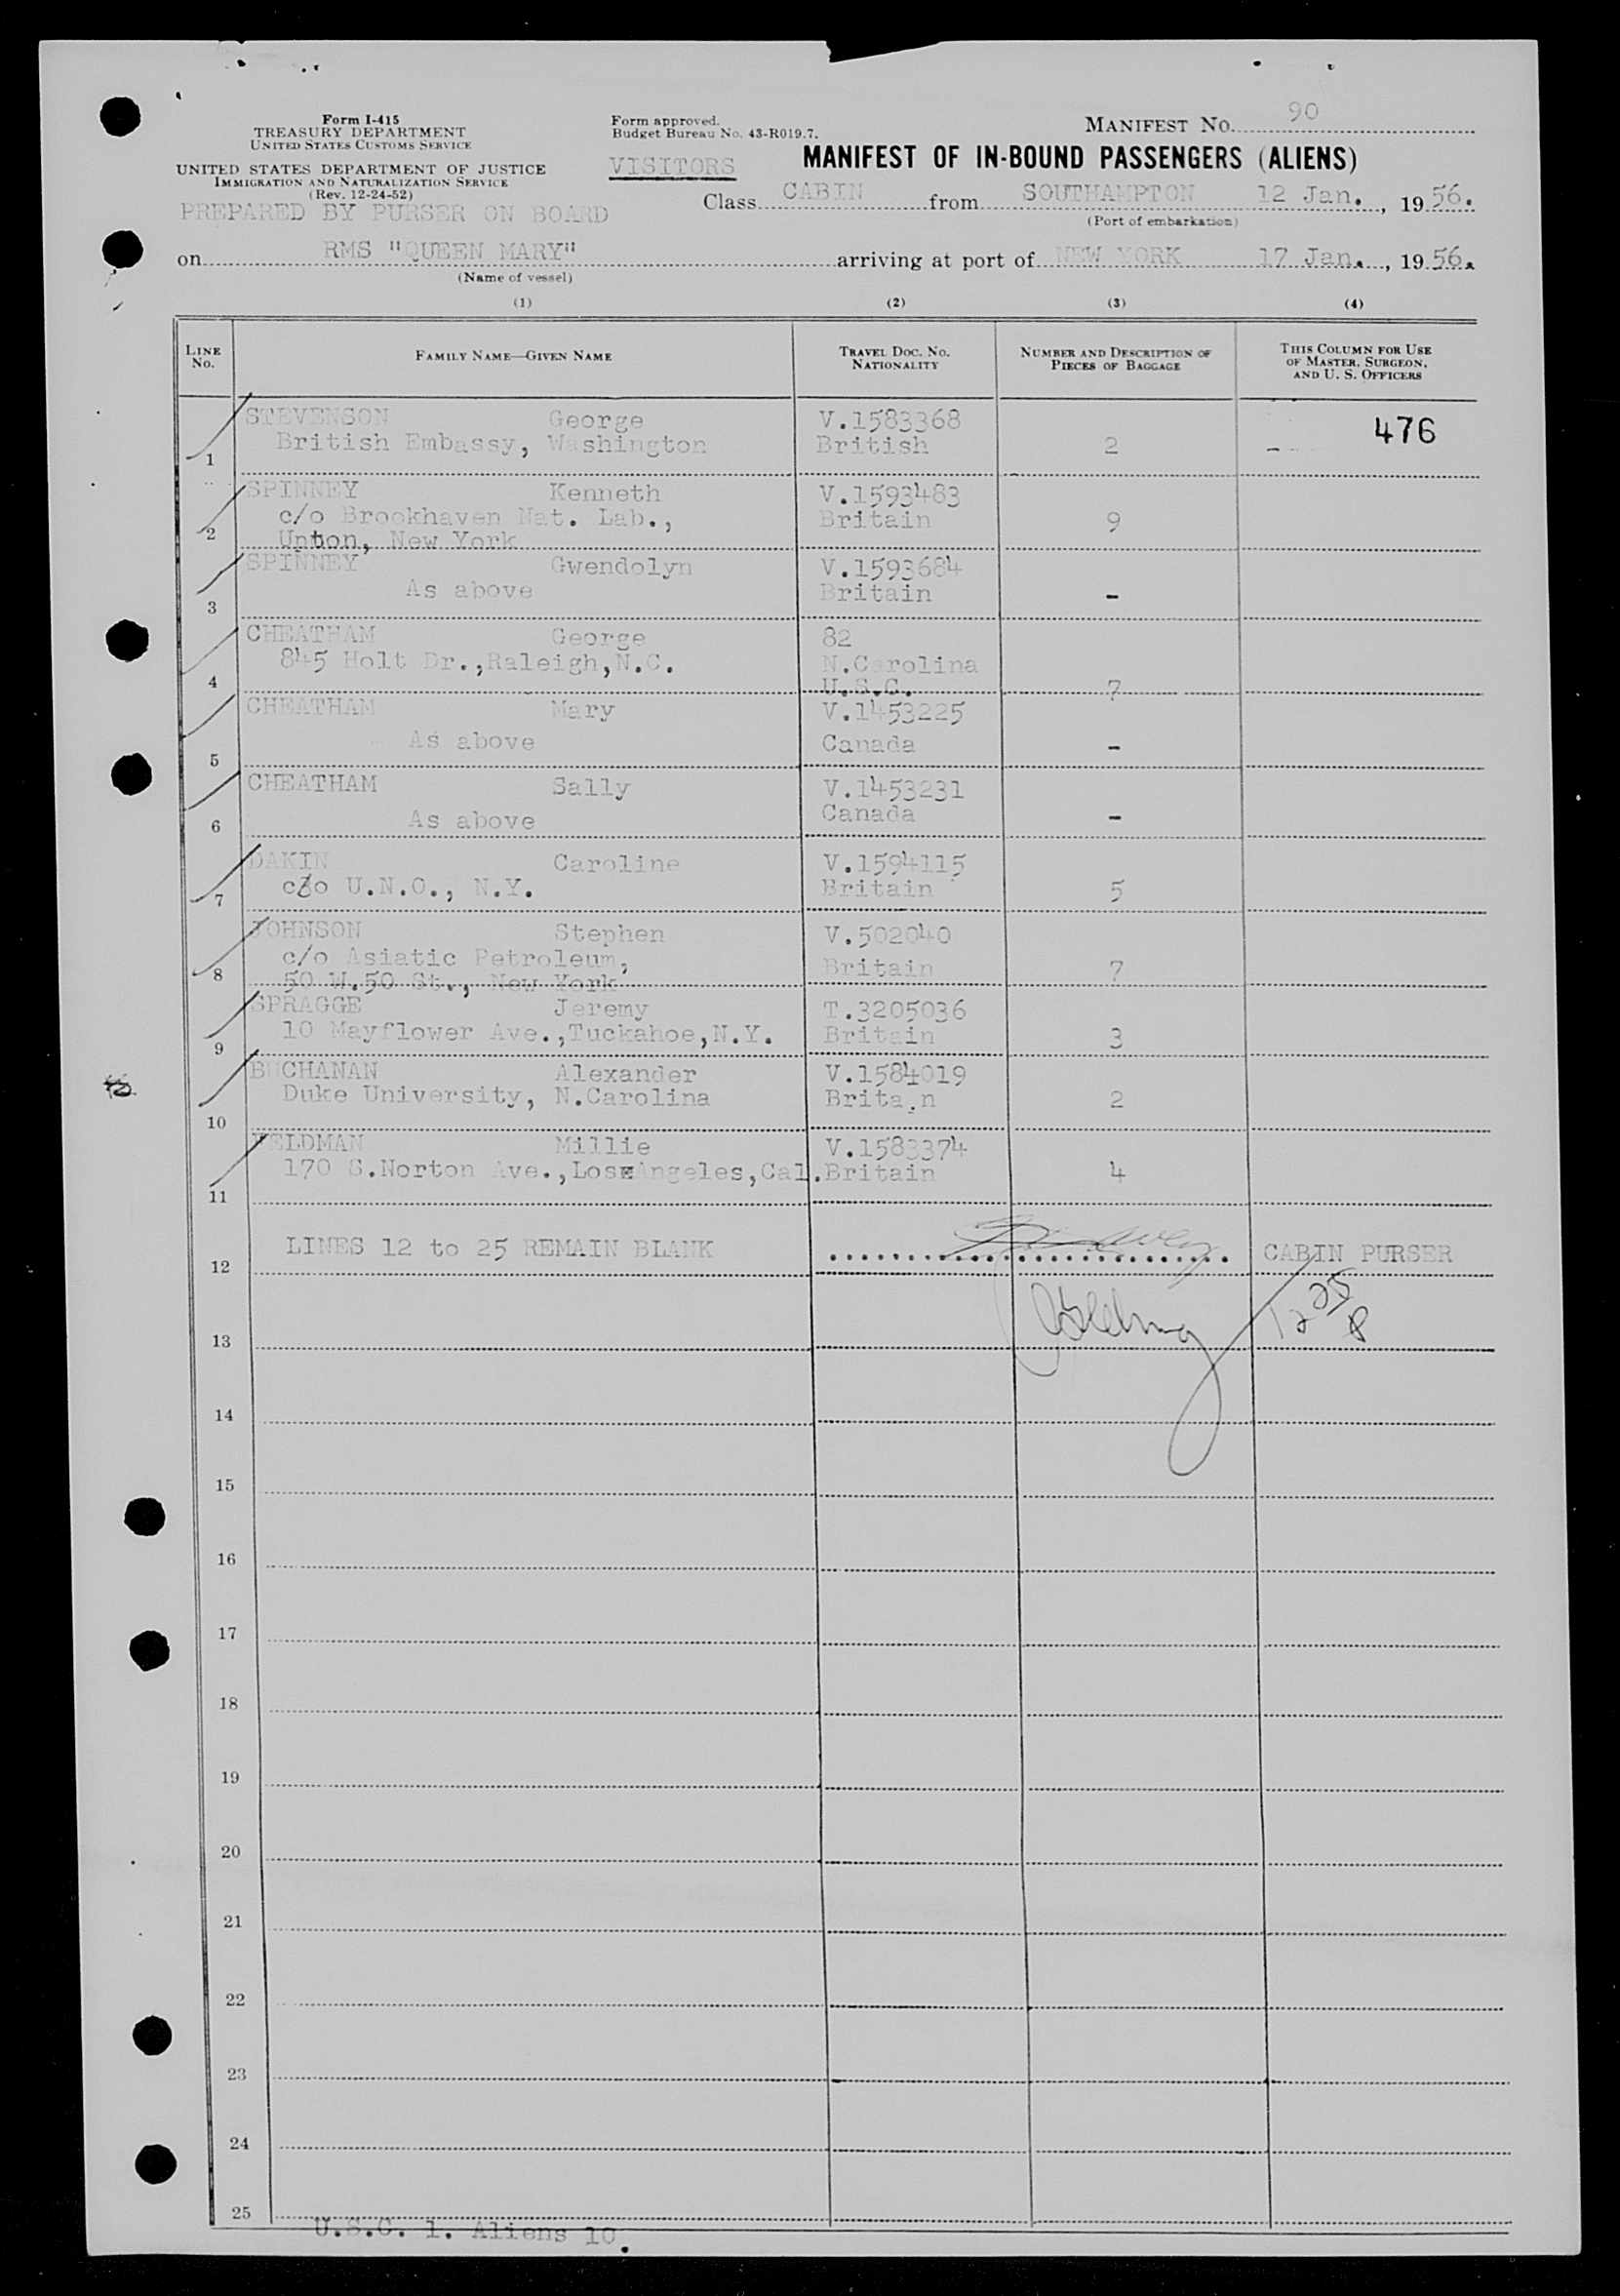 Form I-415
TREASURY DEPARTMENT
UNITED STATES CUSTOMS SERVICE
UNITED STATES DEPARTMENT OF JUSTICE
IMMIGRATION AND NATURALIZATION SERVICE
(Rev. 12-24-52)
PREPARED BY PURSER ON BOARD
Form approved.
Budget Bureau No. 43-R019.7.
VISITORS
MANIFEST NO. 90
MANIFEST OF IN-BOUND PASSENGERS (ALIENS)
Class CABIN from SOUTHAMPTON 12 Jan., 1956.
(Port of embarkation)
on RMS "QUEEN MARY" arriving at port of NEW YORK 17 Jan., 1956.
(Name of vessel)
(1) (2) (3) (4)
LINE NO. FAMILY NAME—GIVEN NAME TRAVEL DOC. NO. NATIONALITY NUMBER AND DESCRIPTION OF PIECES OF BAGGAGE THIS COLUMN FOR USE OF MASTER, SURGEON, AND U. S. OFFICERS
STEVENSON George V.1583368 476
British Embassy, Washington British 2 -
1
SPINNEY Kenneth V.1593483
c/o Brookhaven Nat. Lab., Britain 9
2 Unton, New York
SPINNEY Gwendolyn V.1593684
As above Britain -
3
CHEATHAM George 82
845 Holt Dr.,Raleigh,N.C. N.Carolina
4 U.S.C. 7
CHEATHAM Mary V.1453225
As above Canada -
5
CHEATHAM Sally V.1453231
As above Canada -
6
DAKIN Caroline V.1594115
c/o U.N.O., N.Y. Britain 5
7
JOHNSON Stephen V.502040
c/o Asiatic Petroleum, Britain 7
8 50 W.50 St., New York
SPRAGGE Jeremy T.3205036
10 Mayflower Ave.,Tuckahoe,N.Y. Britain 3
9
BUCHANAN Alexander V.1584019
Duke University, N.Carolina Brita.n 2
10
FELDMAN Millie V.1583374
170 S.Norton Ave.,Los Angeles,Cal. Britain 4
11
LINES 12 to 25 REMAIN BLANK CABIN PURSER
12
13
14
15
16
17
18
19
20
21
22
23
24
25
U.S.C. 1. Aliens 10.